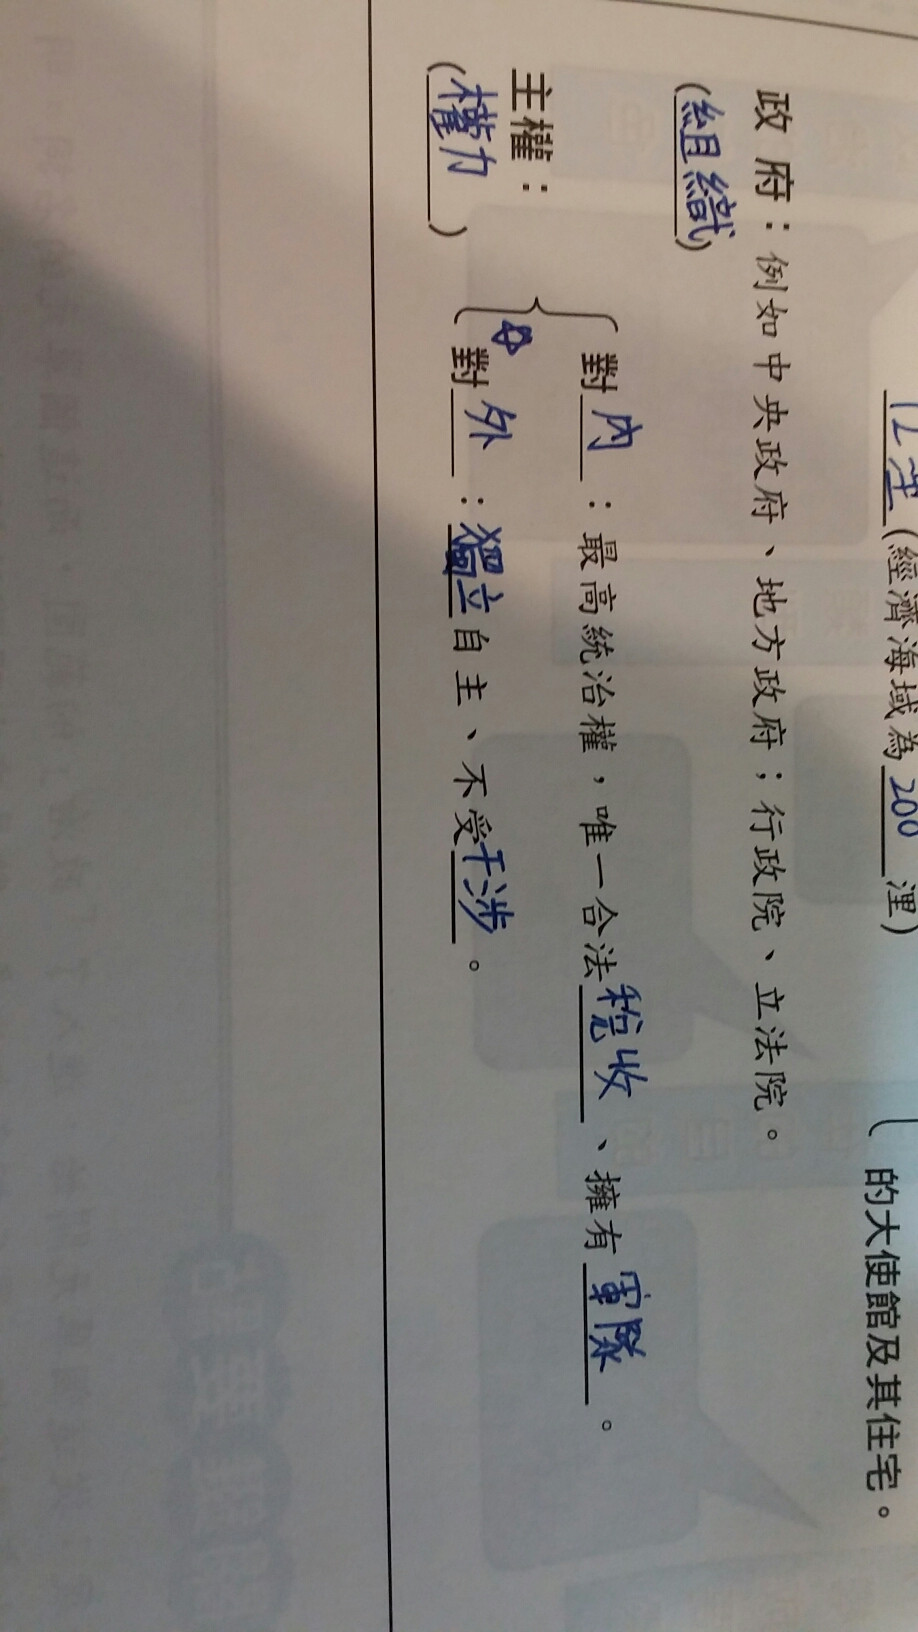 (經濟海域為200浬)
的大使館及其住宅。
政府：例如中央政府、地方政府；行政院、立法院。
(組織)
主權：
(權力)
對內：最高統治權，唯一合法稅收、擁有軍隊。
對外：獨立自主、不受干涉。